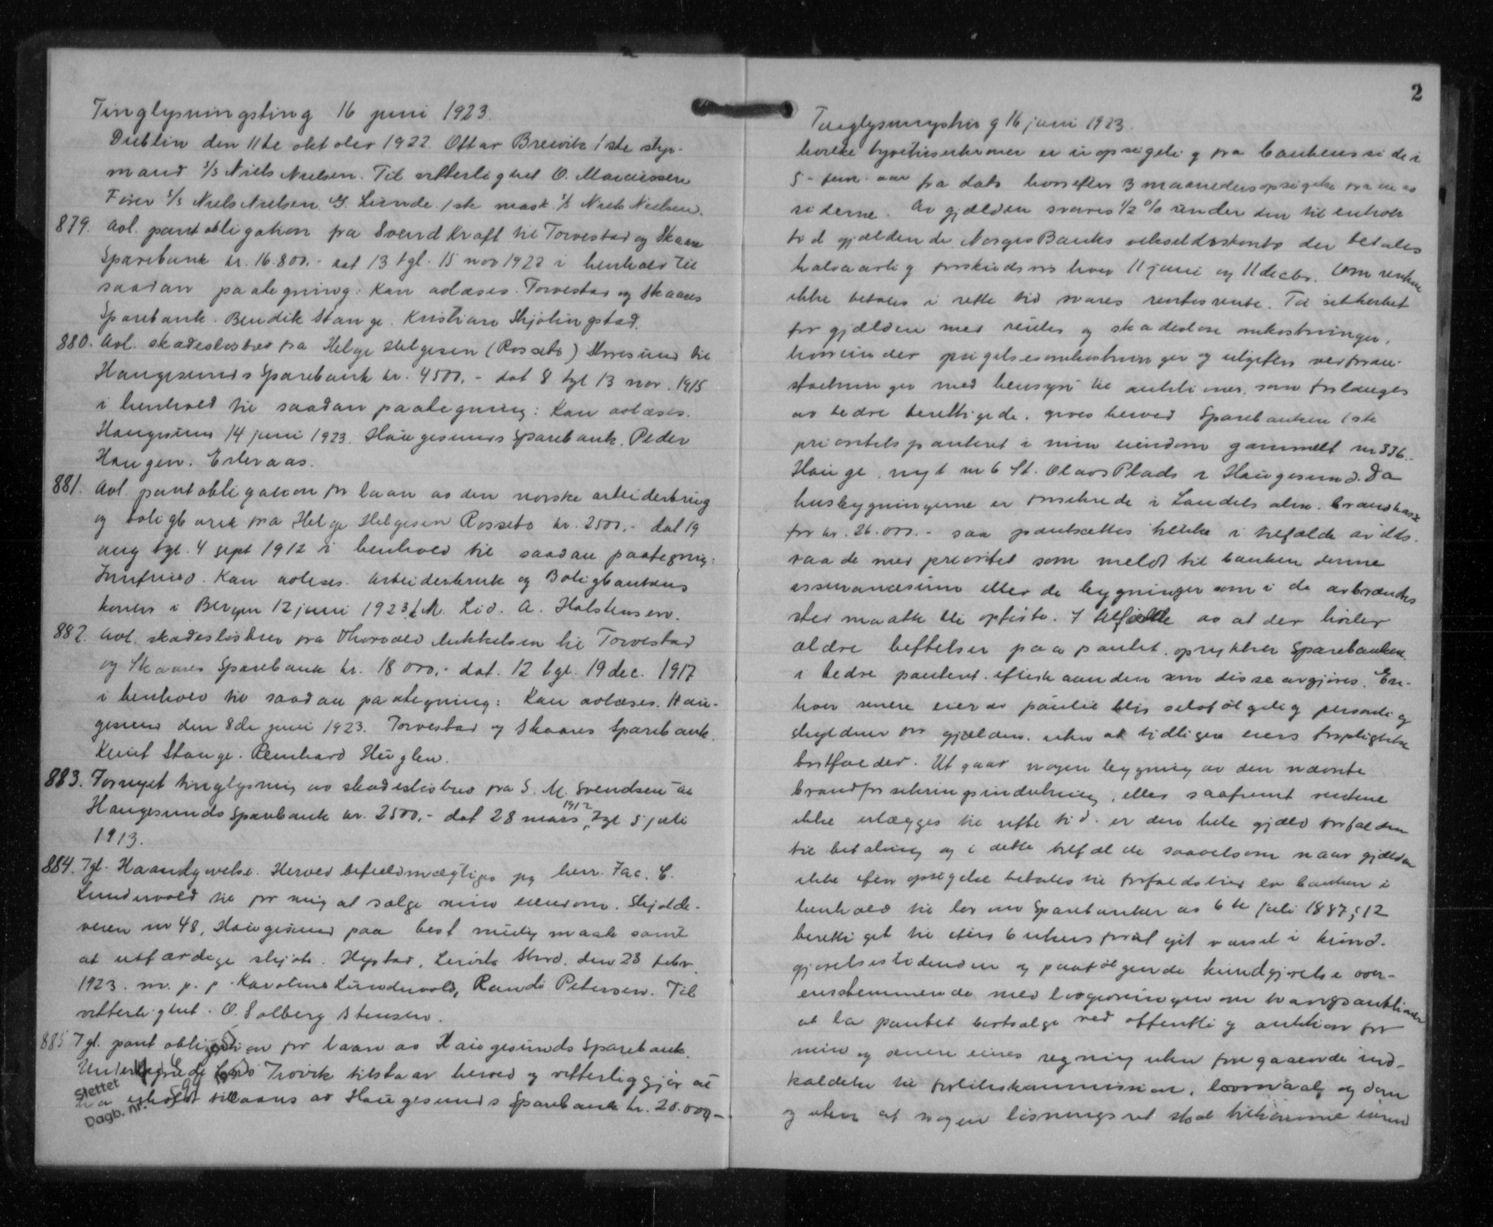 Tinglysningsting 16 juni 1923.
Dublin den 11te oktober 1922 Ottar Breivik 1ste styr-
mand S/S Niels Nielsen. Til vitterlighet O.
Fører S/S Niels Nielsen G. Lunde 1ste mask. S/S Niels Nielsen.
879. Avl. pantobligation fra Svend Kraft til Torvestad og Skaare
Sparebank kr. 16.800.- dat 13 tgl. 15 nov 1922 i henhold til
saadan paategning: Kan avlæses. Torvestad og Skaares
Sparebank. Bendik Stange. Kristian Skjølingstad.
880. Avl. skadesløsbrev fra Helge Helgesen (Rossebø) til
Haugesunds Sparebank kr. 4500.- dat 8 tgl 13 nov. 1915
i henhold til saadan paategning: Kan avlæses.
Haugesund 14 juni 1923. Haugesunds Sparebank. Peder
Haugen. Erlevaas.
881. Avl. pantobligation for laan av den norske arbeiderbruk
og boligbank fra Helge Helgesen Rossebø kr. 2500.- dat 19
aug tgl. 4 sept 1912 i henhold til saadan paategning:
Innfried. Kan avleses. Arbeiderbruk og Boligbankens
kontor i Bergen 12 juni 1923 M. Lid. A. Halstensen.
882. Avl. skadesløsbrev fra Thorvald Mikkelsen til Torvestad
og Skaares Sparebank kr. 18000.- dat. 12 tgl. 19 dec. 1917
i henhold til saadan paategning: Kan avlæses. Hau-
gesund den 8de juni 1923. Torvestad og Skaares Sparebank.
Knut Stange. Reinhard Huglen.
883. Fornyet tinglysning av skadesløsbrev fra S. M. Svendsen til
Haugesunds Sparebank kr. 2500.- dat 28 mars 1912, tgl 5 juli
1913.
884. Tgl. Haandgivelse. Herved befuldmægtiges jeg herr Jac. C.
Lundevold til for mig at sælge min eiendom. Skjolde-
veien nr 48, Haugesund paa best mulig maate samt
at utfærdige skjøte. Hystad, Lervik Stord. den 23 febr.
1923. m. p. p. Karoline Lundevold, Randi Petersen. Til
vitterlighet. O. Solberg Stensen.
885 Tgl. pantobligation for laan av Haugesunds Sparebank.
Undertegnede Trovik tilstaar herved og vitterliggjør at
ha erholdt tillaans av Haugesunds Sparebank kr. 20.000.-
Slettet
Dagb. nr.
2
Tinglysningsting 16 juni 1923.
hvilke tyvetusenkroner er uopsigelig fra bankens side i
5 - fem - aar fra dato hvorefter 3 maaneders opsigelse fra
siderne. Av gjælden svares 1/2 % under den til enhver
tid gjældende Norges Banks vekseldiskonto der betales
halvaarlig forskudsvis hver 11 juni og 11 decbr. Om renten
ikke betales i rette tid svares rentesrente. Til sikkerhet
for gjælden med renter og skadesløse omkostninger,
herunder opsigelsesomkostninger og utgifter ved foran-
staltninger med hensyn til auktioner som forlanges
av bedre berettigede, gives herved Sparebanken 1ste
prioritets panteret i min eiendom gammelt nr 336.
Hauge, nyt nr 6 St. Olavs Plads i Haugesund. Da
husbygningerne er forsikrede i Landets alm. brandkasse
for kr. 26.000.- saa pantsættes likeledes i tilfælde av ilds-
vaade med prioritet som meldt til banken denne
assurancesum eller de bygninger som i de avbrændtes
sted maatte bli opført. I tilfælde av at der hviler
ældre heftelser paa pantet, oprykker Sparebanken
i bedre panteret efterhaanden som disse avgjøres. En-
hver senere eier av pantet blir selvfølgelig personlig
skyldner for gjælden, uten at tidligere eiers forpligtelse
bortfalder. Utgaar nogen bygning av den nævnte
brandforsikringsindretning, eller saafremt rentene
ikke erlægges til rette tid, er den hele gjæld forfalden
til betaling og i dette tilfælde saavelsom naar gjælden
ikke efter opsigelse betales til forfaldstid er banken i
henhold til lov om Sparebanker av 6te juli 1887, § 12
berettiget til efter 6 ukers forut git varsel i kund-
gjørelsestidenden og paafølgende kundgjørelse over-
ensstemmende med lovgivningen om tvangsauktioner
at la pantet bortsælge ved offentlig auktion for
min og senere eieres regning uten foregaaende ind-
kaldelse til forlikskommission, lovmaal og dom
og uten at nogen løsningsret skal tilkomme eieren